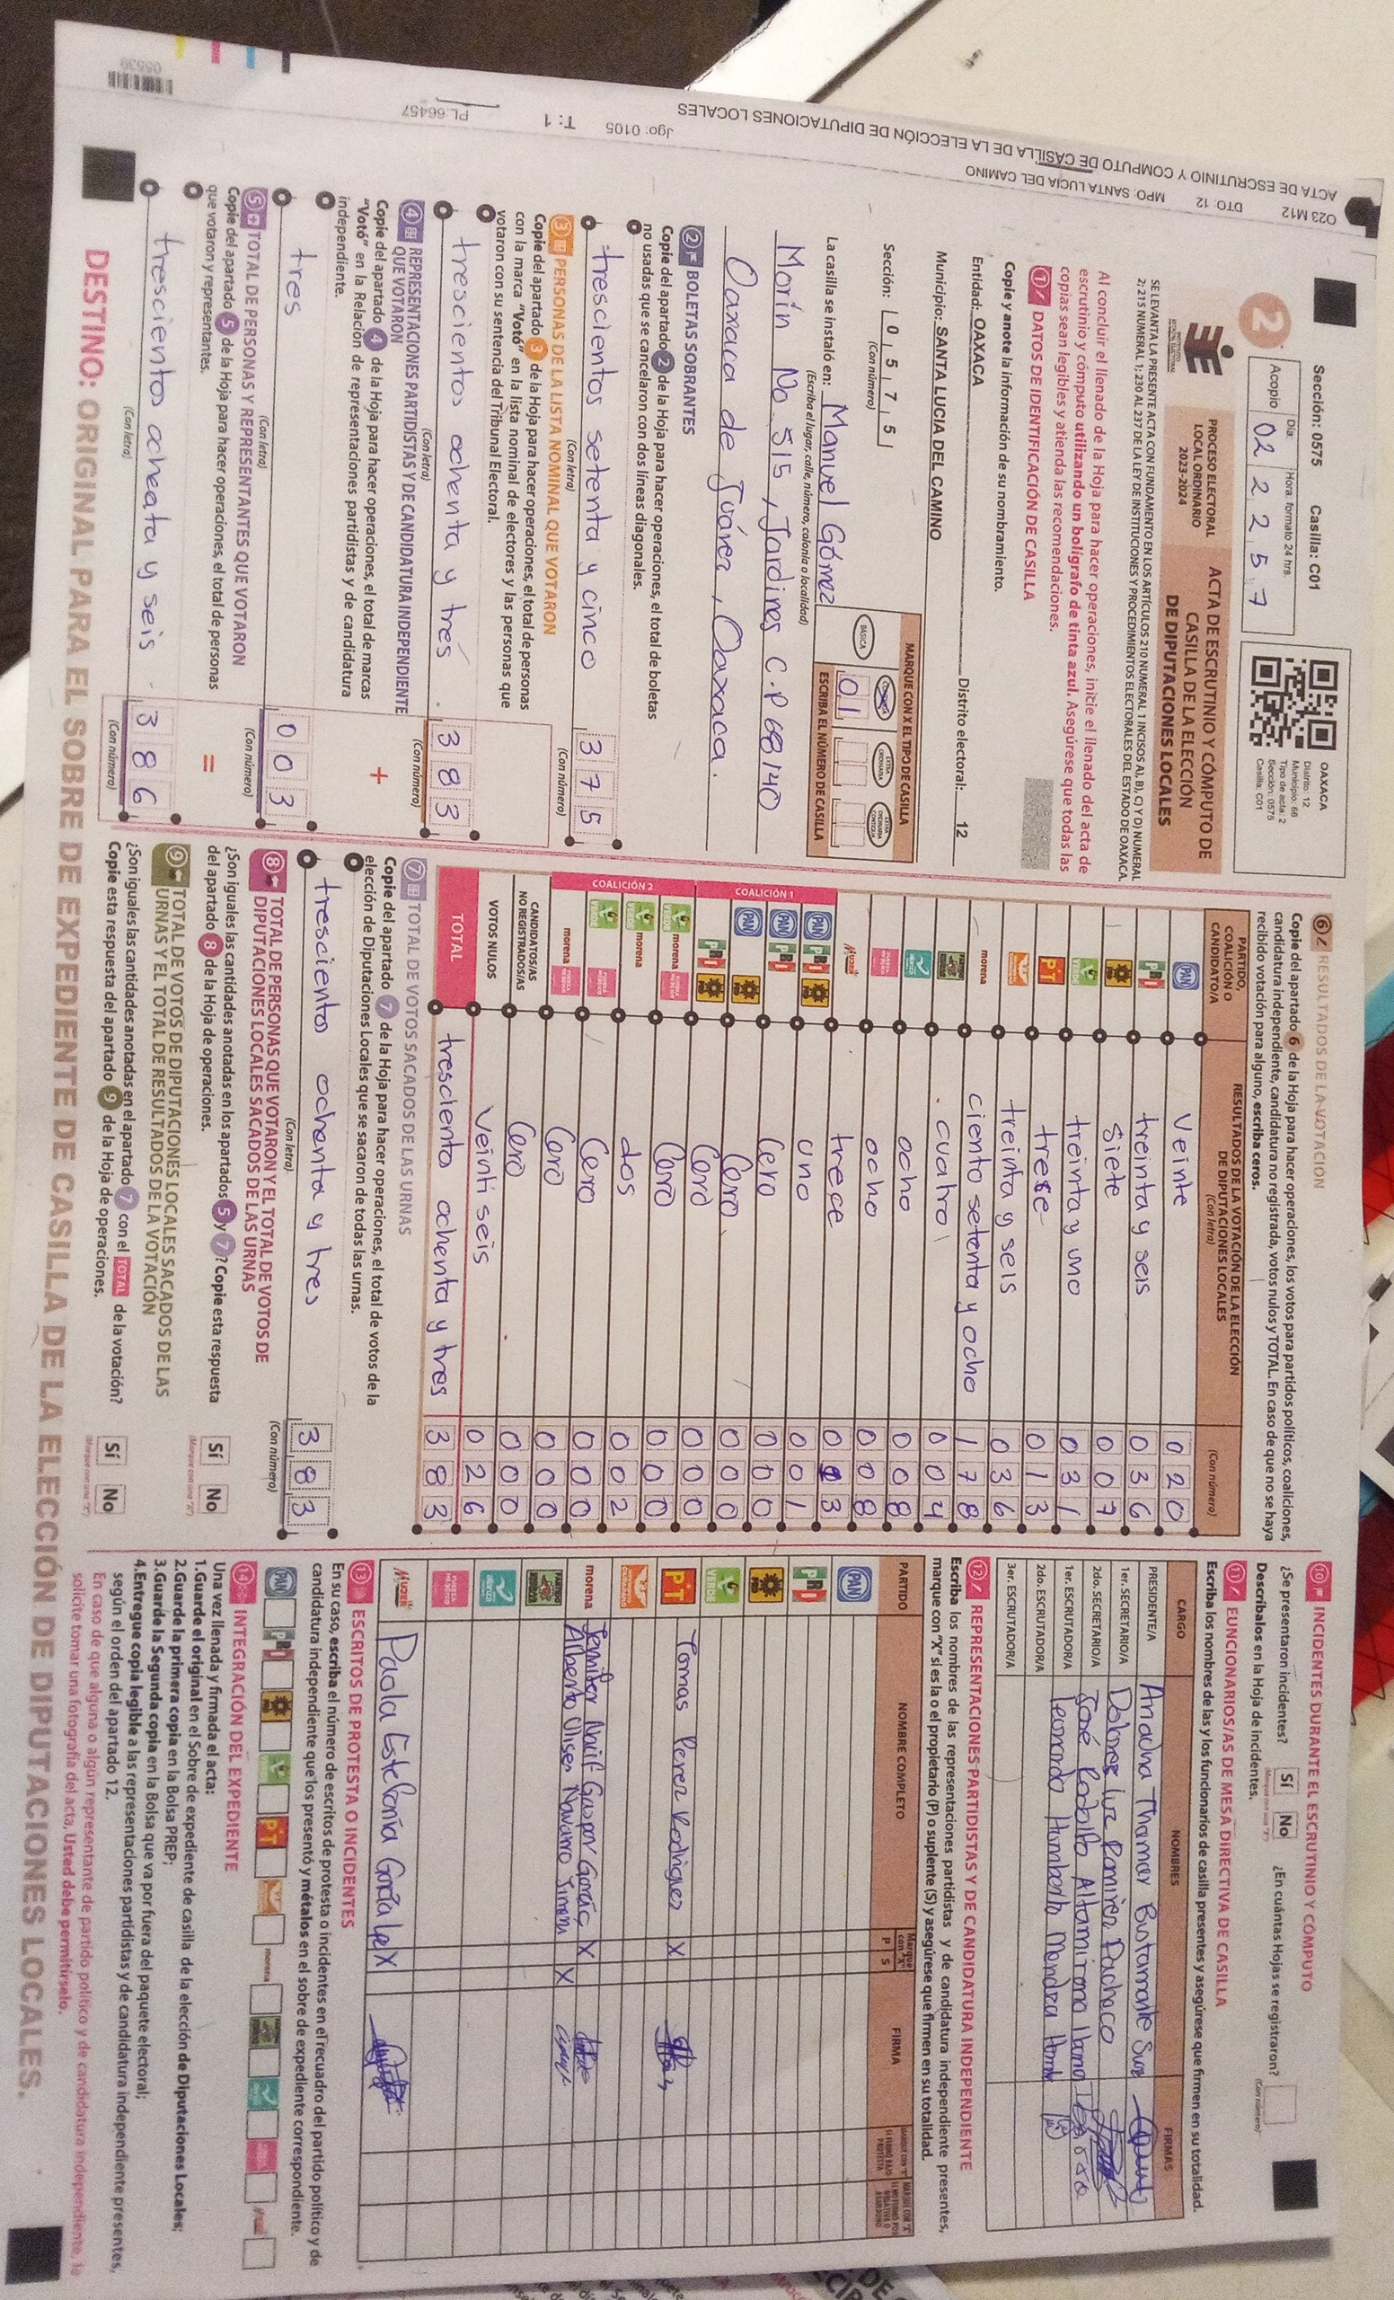 Sección: 0575 Casilla: C01
2
Día: Hora: formato 24 hrs.
Acopio 02 22 57
OAXACA
Distrito: 12
Municipio: 66
Tipo de acta: 2
Sección: 0575
Casilla: C01
PROCESO ELECTORAL
LOCAL ORDINARIO
2023-2024
ACTA DE ESCRUTINIO Y CÓMPUTO DE
CASILLA DE LA ELECCIÓN
DE DIPUTACIONES LOCALES
SE LEVANTA LA PRESENTE ACTA CON FUNDAMENTO EN LOS ARTÍCULOS 210 NUMERAL 1 INCISOS A), B), C) Y D) NUMERAL
2; 215 NUMERAL 1; 230 AL 237 DE LA LEY DE INSTITUCIONES Y PROCEDIMIENTOS ELECTORALES DEL ESTADO DE OAXACA.
Al concluir el llenado de la Hoja para hacer operaciones, inicie el llenado del acta de
escrutinio y cómputo utilizando un bolígrafo de tinta azul. Asegúrese que todas las
copias sean legibles y atienda las recomendaciones.
1 DATOS DE IDENTIFICACIÓN DE CASILLA
Copie y anote la información de su nombramiento.
Entidad: OAXACA Distrito electoral: 12
Municipio: SANTA LUCIA DEL CAMINO
Sección: 0 5 7 5
(Con número)
MARQUE CON X EL TIPO DE CASILLA
BÁSICA
ESCRIBA EL NÚMERO DE CASILLA
01
La casilla se instaló en: Manuel Gómez
(Escriba el lugar, calle, número, colonia o localidad)
Morín No 515, Jardines C.P 68140
Oaxaca de Juárez, Oaxaca.
2 BOLETAS SOBRANTES
Copie del apartado 2 de la Hoja para hacer operaciones, el total de boletas
no usadas que se cancelaron con dos líneas diagonales.
trescientos setenta y cinco 375
(Con letra) (Con número)
3 PERSONAS DE LA LISTA NOMINAL QUE VOTARON
Copie del apartado 3 de la Hoja para hacer operaciones, el total de personas
con la marca "Votó" en la lista nominal de electores y las personas que
votaron con su sentencia del Tribunal Electoral.
trescientos ochenta y tres. 383
(Con letra) (Con número)
4 REPRESENTACIONES PARTIDISTAS Y DE CANDIDATURA INDEPENDIENTE
QUE VOTARON
+
Copie del apartado 4 de la Hoja para hacer operaciones, el total de marcas
"Votó" en la Relación de representaciones partidistas y de candidatura
independiente.
tres 003
(Con letra) (Con número)
5 TOTAL DE PERSONAS Y REPRESENTANTES QUE VOTARON
Copie del apartado 5 de la Hoja para hacer operaciones, el total de personas
que votaron y representantes.
=
trescientos ocheata y seis 386
(Con letra) (Con número)
6 RESULTADOS DE LA VOTACIÓN
Copie del apartado 6 de la Hoja para hacer operaciones, los votos para partidos políticos, coaliciones,
candidatura independiente, candidatura no registrada, votos nulos y TOTAL. En caso de que no se haya
recibido votación para alguno, escriba ceros.
PARTIDO,
COALICIÓN O
CANDIDATO/A
RESULTADOS DE LA VOTACIÓN DE LA ELECCIÓN
DE DIPUTACIONES LOCALES
(Con letra)
(Con número)
PAN Veinte 020
PRI treinta y seis 036
PRD siete 007
VERDE treinta y uno 031
PT trese 013
treinta y seis 036
morena ciento setenta y ocho 178
cuatro 004
ocho 008
ocho 008
MUJER trece
COALICIÓN 1
PAN PRI PRD uno 001
PAN PRI Cero 000
PAN PRD Cero 000
PRI PRD Cero 000
COALICIÓN 2
VERDE morena Cero 000
VERDE morena dos 002
VERDE Cero 000
morena Cero 000
CANDIDATOS/AS
NO REGISTRADOS/AS Cero 000
VOTOS NULOS Veinti seis 026
TOTAL tresciento ochenta y tres 383
7 TOTAL DE VOTOS SACADOS DE LAS URNAS
Copie del apartado 7 de la Hoja para hacer operaciones, el total de votos de la
elección de Diputaciones Locales que se sacaron de todas las urnas.
tresciento ochenta y tres 383
(Con letra) (Con número)
8 TOTAL DE PERSONAS QUE VOTARON Y EL TOTAL DE VOTOS DE
DIPUTACIONES LOCALES SACADOS DE LAS URNAS
¿Son iguales las cantidades anotadas en los apartados 5 y 7? Copie esta respuesta
del apartado 8 de la Hoja de operaciones.
Sí No
9 TOTAL DE VOTOS DE DIPUTACIONES LOCALES SACADOS DE LAS
URNAS Y EL TOTAL DE RESULTADOS DE LA VOTACIÓN
¿Son iguales las cantidades anotadas en el apartado 7 con el TOTAL de la votación?
Copie esta respuesta del apartado 9 de la Hoja de operaciones.
Sí No
10 INCIDENTES DURANTE EL ESCRUTINIO Y CÓMPUTO
¿Se presentaron incidentes? Sí No ¿En cuántas Hojas se registraron?
Descríbalos en la Hoja de incidentes.
11 FUNCIONARIOS/AS DE MESA DIRECTIVA DE CASILLA
Escriba los nombres de las y los funcionarios de casilla presentes y asegúrese que firmen en su totalidad.
CARGO NOMBRES FIRMAS
PRESIDENTE/A Ariadna Thamar Bustamante
1er. SECRETARIO/A Dolores Luz Ramirez Pacheco
2do. SECRETARIO/A José Rodolfo Altamirano
1er. ESCRUTADOR/A Leonardo Humberto Mendoza
2do. ESCRUTADOR/A
3er. ESCRUTADOR/A
12 REPRESENTACIONES PARTIDISTAS Y DE CANDIDATURA INDEPENDIENTE
Escriba los nombres de las representaciones partidistas y de candidatura independiente presentes,
marque con "X" si es la o el propietario (P) o suplente (S) y asegúrese que firmen en su totalidad.
PARTIDO NOMBRE COMPLETO Marque con "X" P S FIRMA
PAN
PRI
PRD
VERDE
PT Tomas Perez Rodriguez X
morena Jennifer Gaspar García X
Alberto Ulises Navarro X
MUJER Paola Estefanía X
13 ESCRITOS DE PROTESTA O INCIDENTES
En su caso, escriba el número de escritos de protesta o incidentes en el recuadro del partido político y de
candidatura independiente que los presentó y métalos en el sobre de expediente correspondiente.
PAN PRI PRD VERDE PT morena
14 INTEGRACIÓN DEL EXPEDIENTE
Una vez llenada y firmada el acta:
1.Guarde el original en el Sobre de expediente de casilla de la elección de Diputaciones Locales;
2.Guarde la primera copia en la Bolsa PREP;
3.Guarde la Segunda copia en la Bolsa que va por fuera del paquete electoral;
4.Entregue copia legible a las representaciones partidistas y de candidatura independiente presentes,
según el orden del apartado 12.
En caso de que alguna o algún representante de partido político y de candidatura independiente, le
solicite tomar una fotografía del acta, Usted debe permitírselo.
DESTINO: ORIGINAL PARA EL SOBRE DE EXPEDIENTE DE CASILLA DE LA ELECCIÓN DE DIPUTACIONES LOCALES.
ACTA DE ESCRUTINIO Y COMPUTO DE CASILLA DE LA ELECCIÓN DE DIPUTACIONES LOCALES
O23 M12 DTO: 12 MPO: SANTA LUCIA DEL CAMINO
Jgo: 0105 T: 1 PL 66457
05539